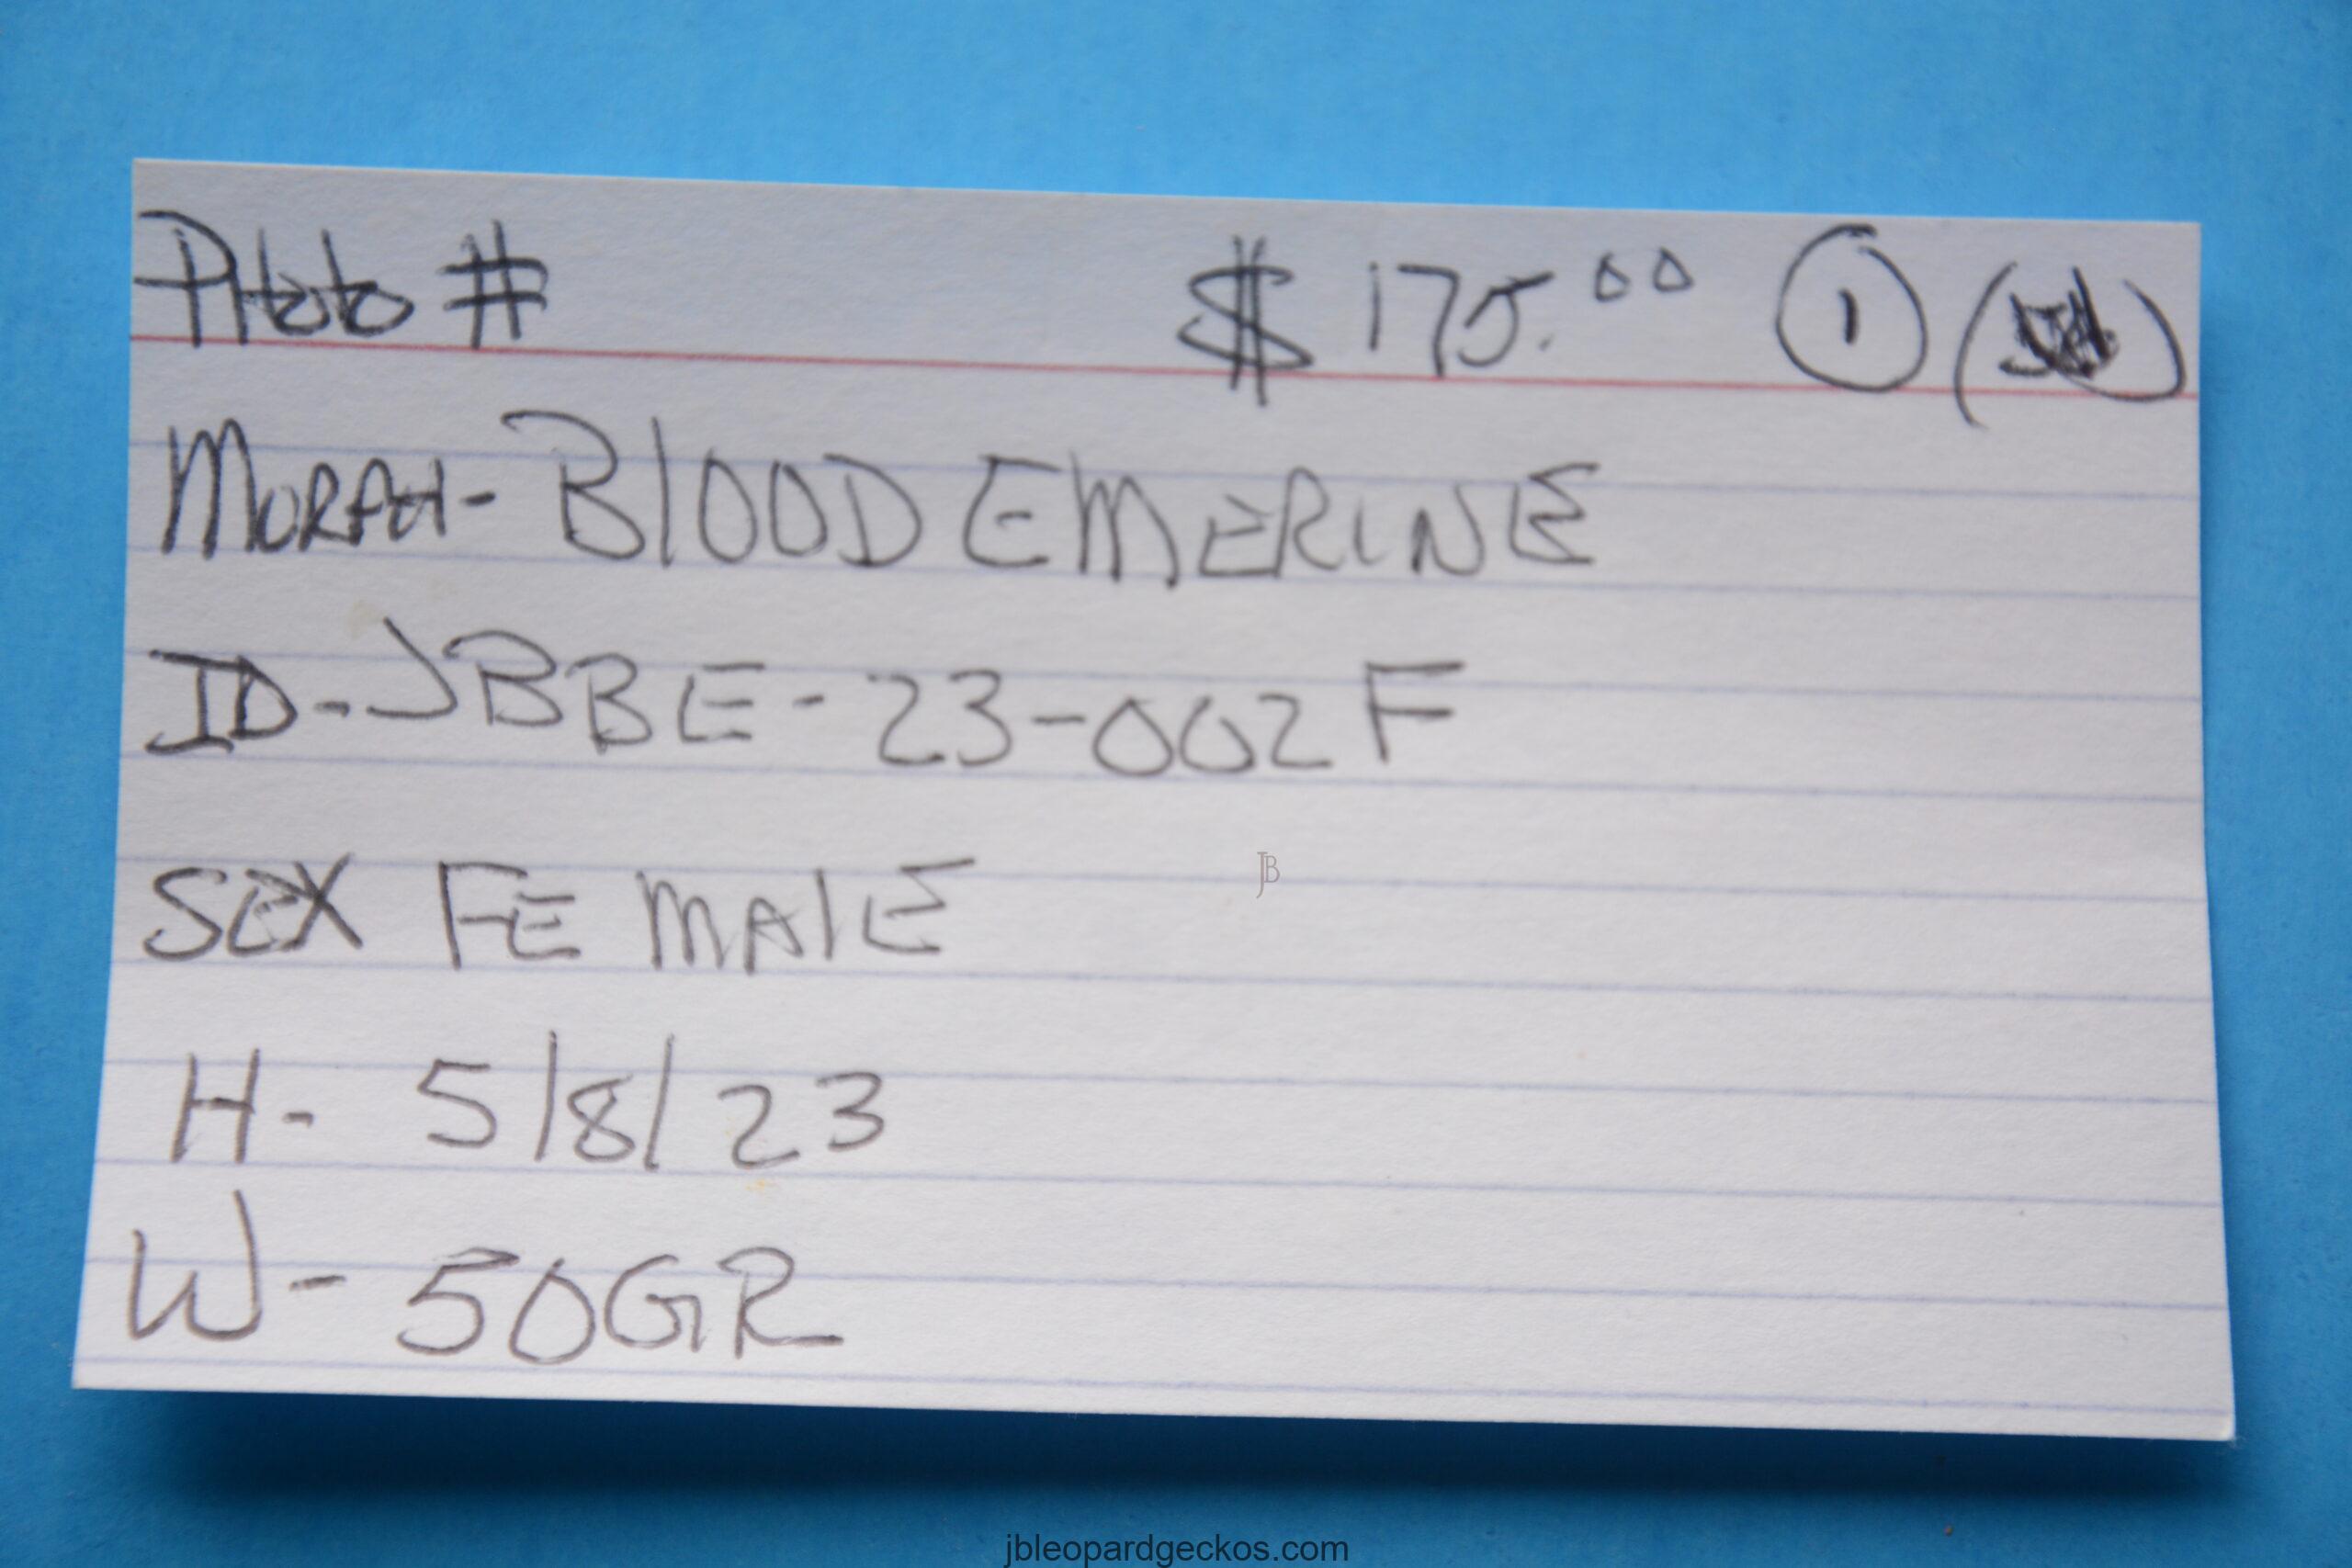 Photo # $ 175.00 1
MORPH- BlOOD EMERINE
ID-JBBE-23-002F
SEX FEMAlE
H- 5/8/23
W- 50GR
JB
jbleopardgeckos.com